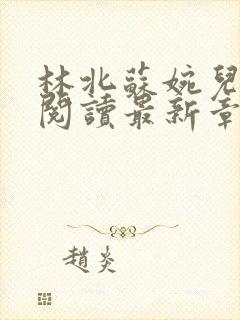 林北蘇婉兒
閱讀最新章
趙炎